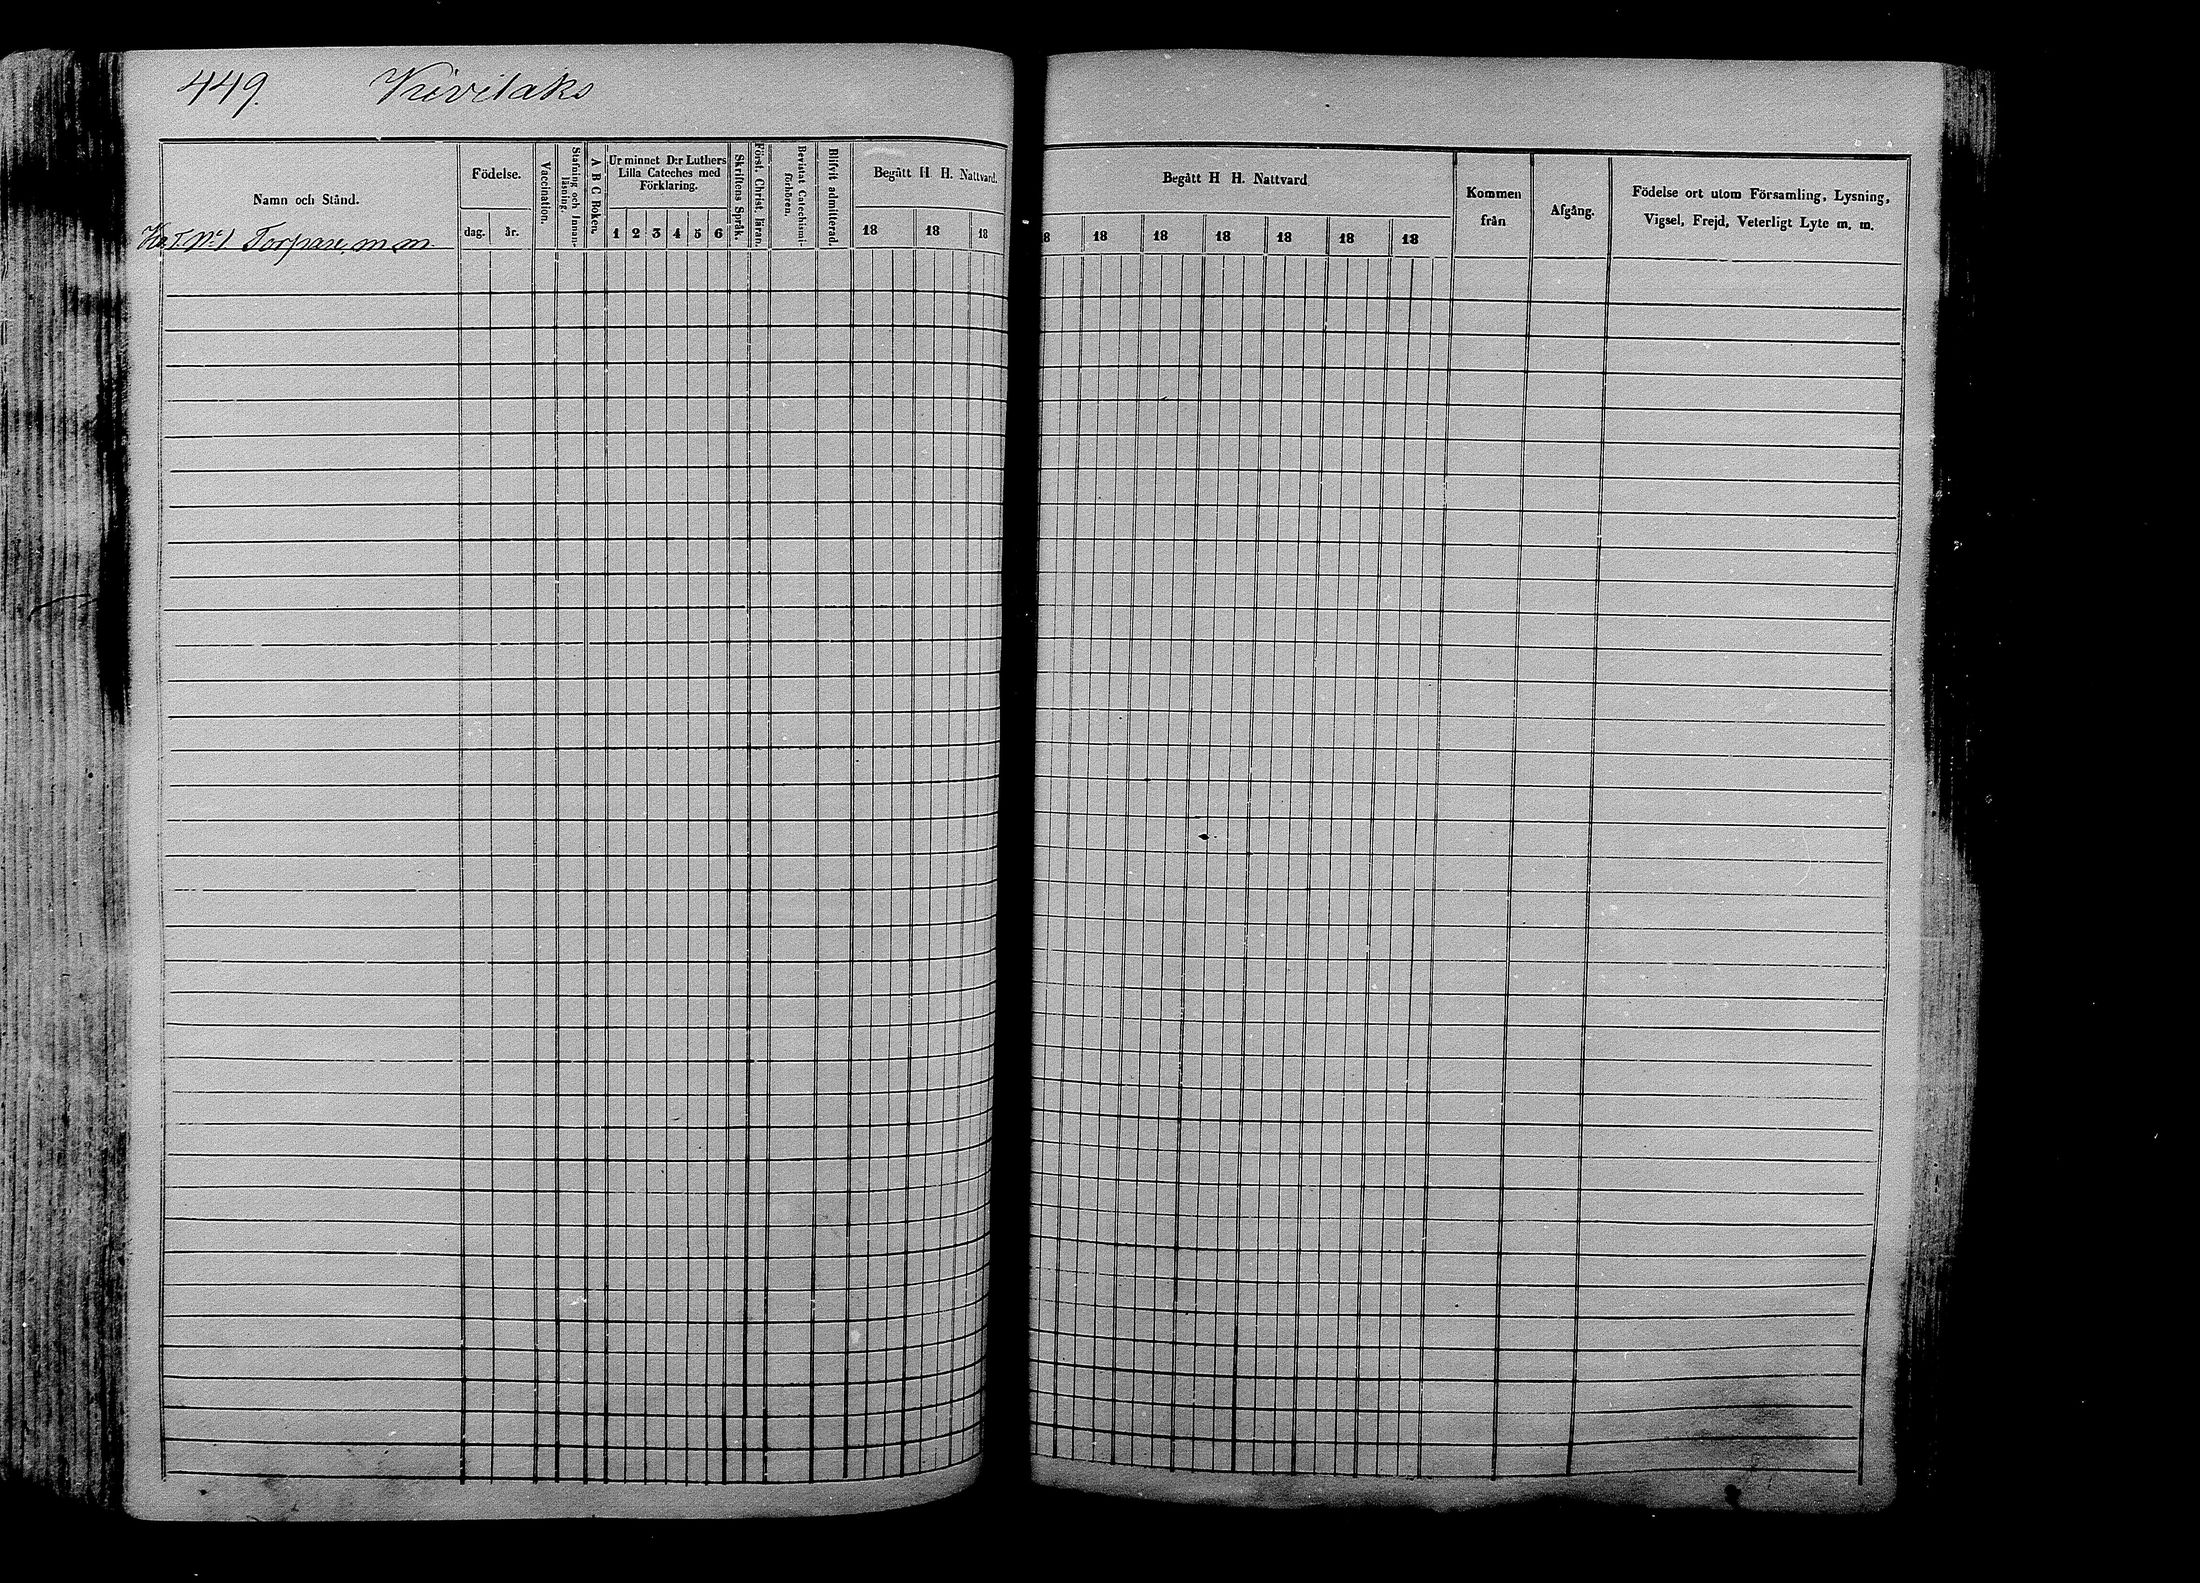 449. Kivilaks
Namn och Stånd.
Födelse.
dag. år.
Vaccination.
Stafning och Innan-
läsning.
A B C Boken.
Ur minnet D:r Luthers
Lilla Cateches med
Förklaring.
1 2 3 4 5 6
Skriftens Språk.
Först. Christ. läran.
Bevistat Catechismi-
förhören.
Blifvit admitterad.
Begått H H. Nattvard.
18 18 18
Begått H H. Nattvard
8 18 18 18 18 18 18
Kommen
från
Afgång.
Födelse ort utom Församling, Lysning,
Vigsel, Frejd, Veterligt Lyte m. m.
No 1 Torpare, m. m.